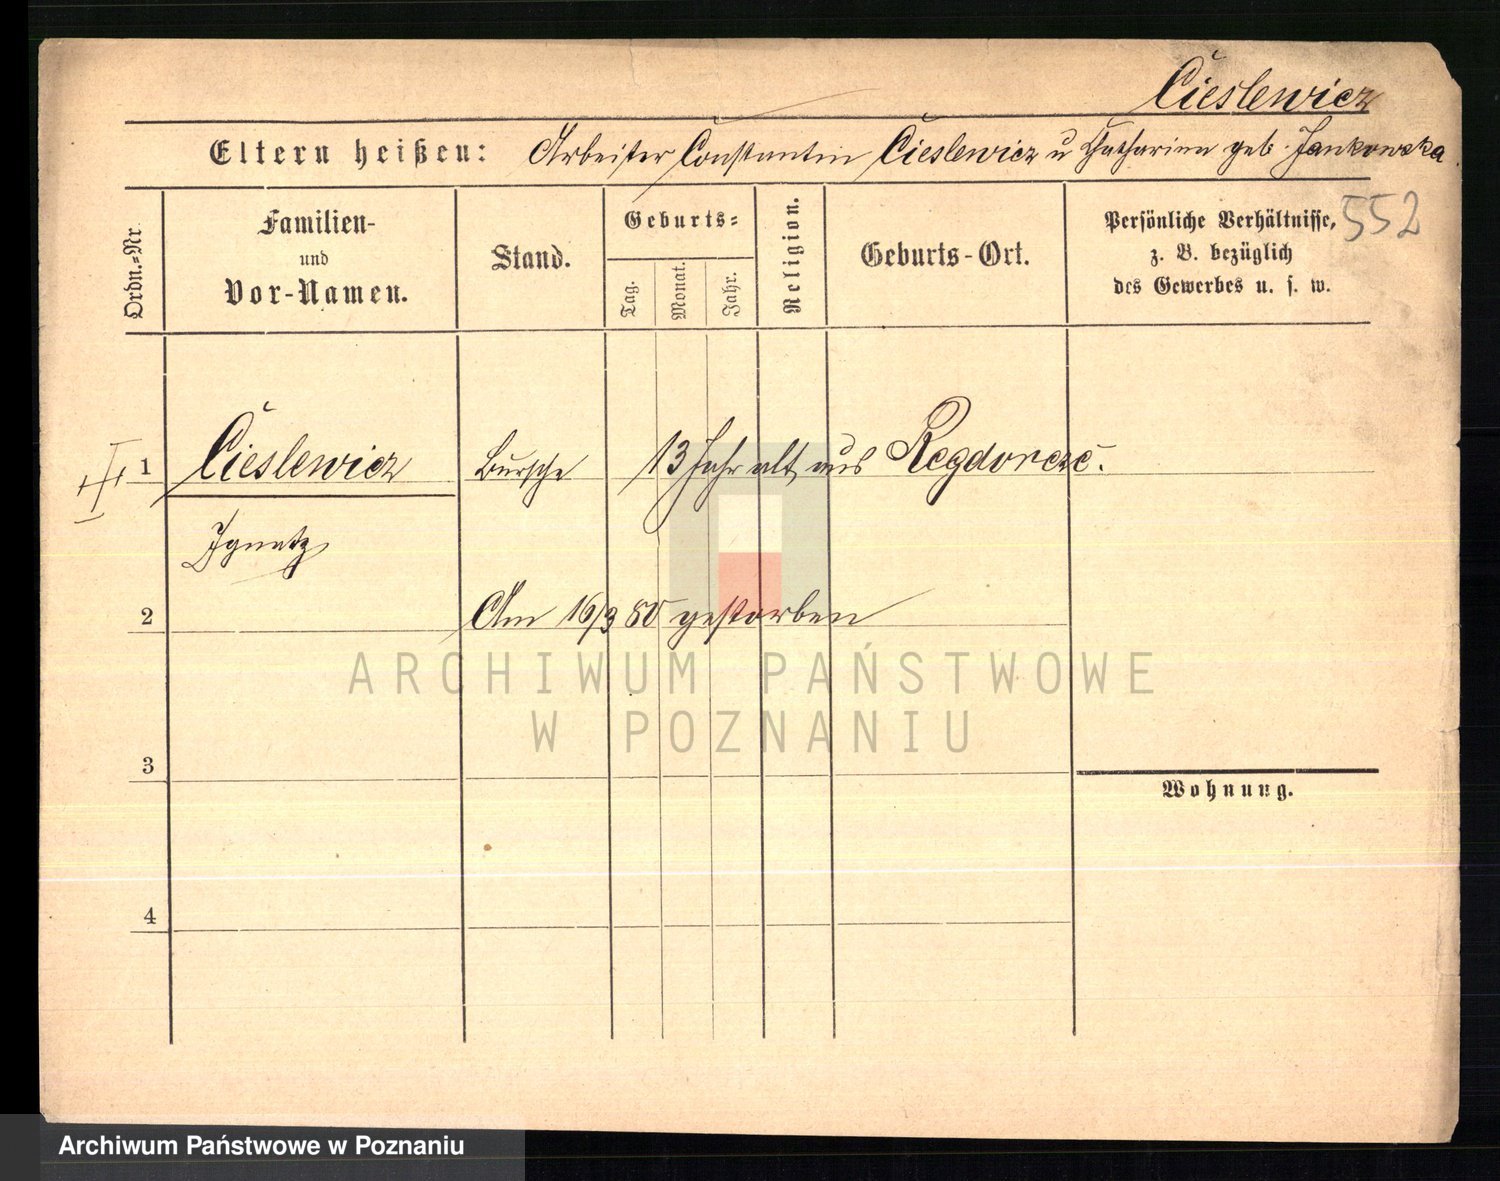 Cieslewicz
Eltern heißen: Arbeiter Constantin Cieslewicz u Catharina geb. Jankowska
552
Ordn.-Nr.
Familien- und Vor-Namen.
Stand.
Geburts-
Tag.
Monat.
Jahr.
Religion.
Geburts-Ort.
Persönliche Verhältnisse,
z. B. bezüglich
des Gewerbes u. s. w.
1 Cieslewicz Bursche 13 Jahr alt aus
Ignatz
2 Am 16/3 80 gestorben
ARCHIWUM PAŃSTWOWE
W POZNANIU
3
Wohnung.
4
Archiwum Państwowe w Poznaniu